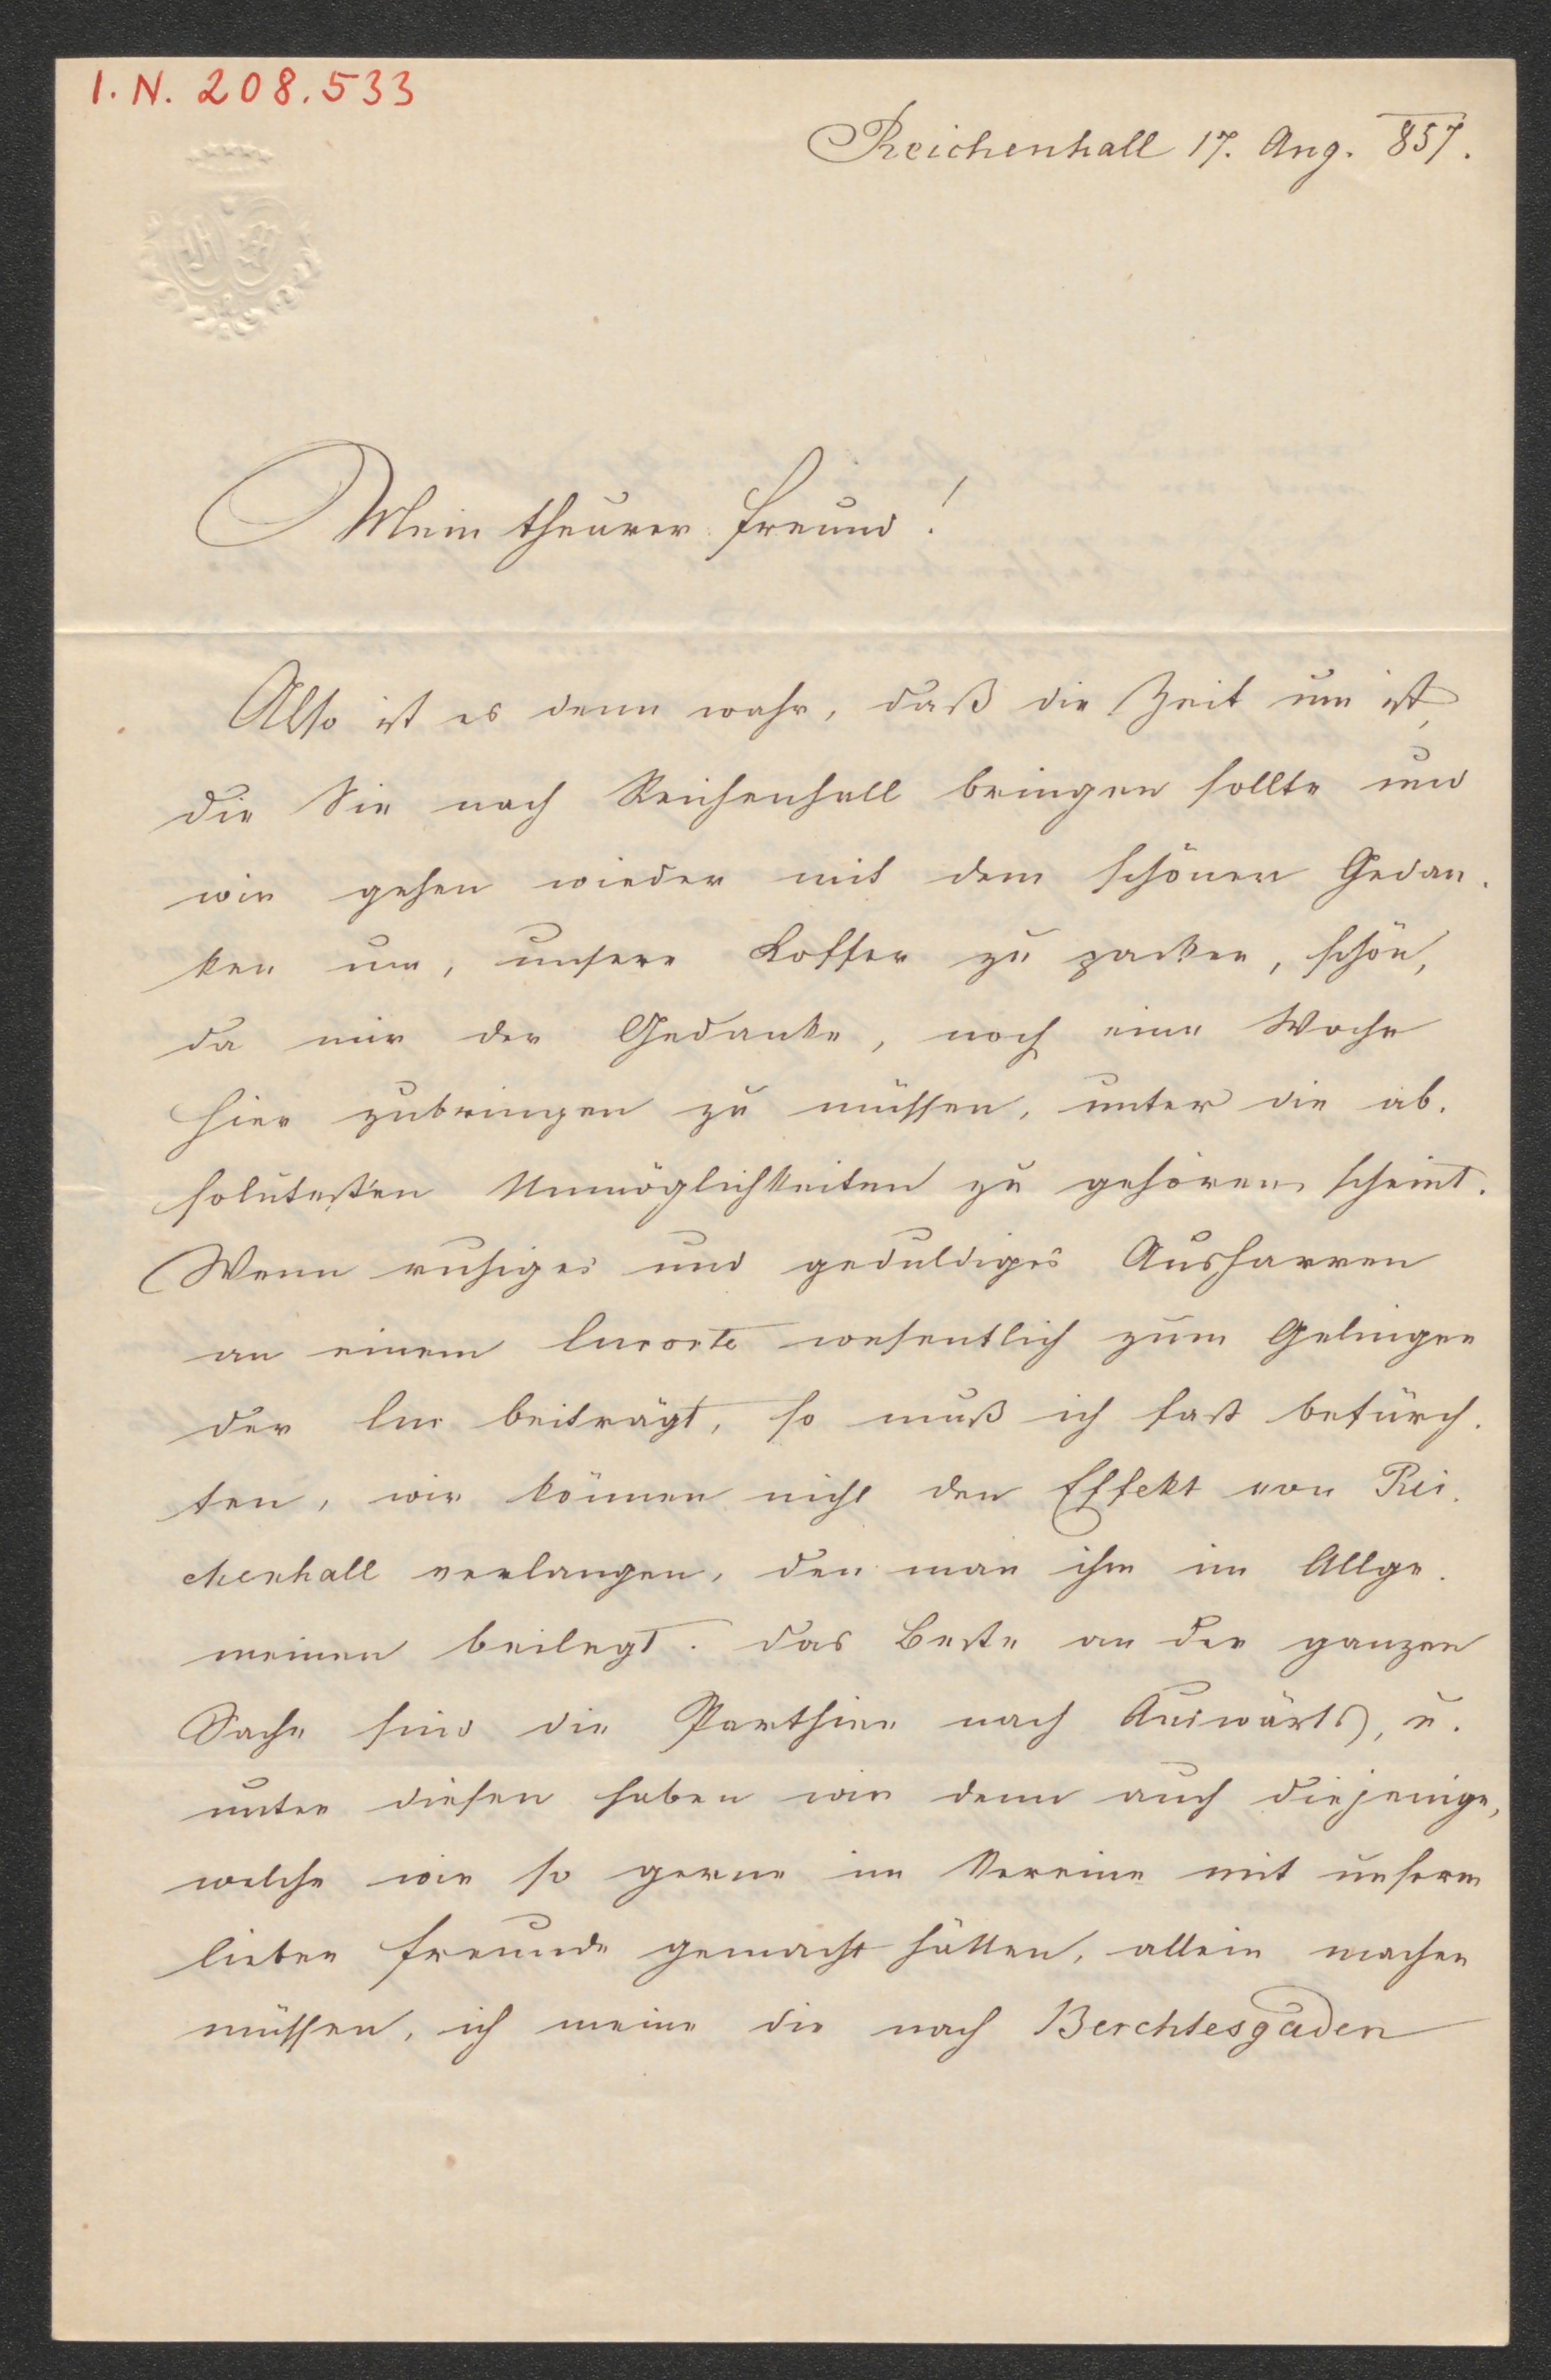 I. N. 208.533
Reichenhall 17. Aug. 857.
Mein theurer Freund!
Also ist es denn wahr, daß die Zeit um ist,
die Sie nach Reichenhall bringen sollte und
wir gehen wieder mit dem schönen Gedan-
ken um, unsere Koffer zu packen, schön,
da mir der Gedanke, noch eine Woche
hier zubringen zu müssen, unter die ab-
solutesten Unmöglichkeiten zu gehören scheint.
Wenn ruhiges und geduldiges Ausharren
an einem Curorte wesentlich zum Gelingen
der Cur beiträgt, so muß ich fast befürch-
ten, wir können nicht den Effekt von Rei-
chenhall verlangen, den man ihm im Allge-
meinen beilegt. Das Beste an der ganzen
Sache sind die Parthien nach Auswärts, u.
unter diesen haben wir denn auch diejenige,
welche wir so gerne im Vereine mit unserm
lieben Freunde gemacht hätten, allein machen
müssen, ich meine die nach Berchtesgaden